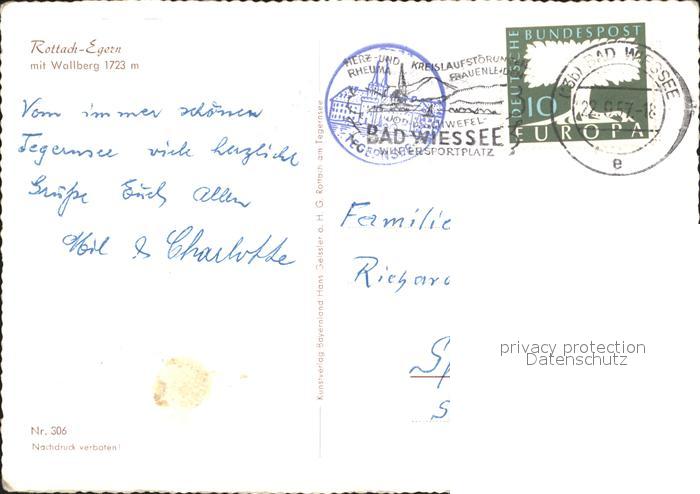 Rottach-Egern
mit Wallberg 1723 m
Vom immer schönen
Tegernsee viele herzliche
Grüße Euch allen
& Charlotte
Nr. 306
Nachdruck verboten!
Kunstverlag Bayernland Hans Geissler o. H. G. Rottach am Tegernsee
HERZ- UND KREISLAUFSTÖRUN
RHEUMA FRAUENLEID
JOD SCHWEFEL-
BAD WIESSEE
WINTERSPORTPLATZ
TEGERNSEE
DEUTSCHE BUNDESPOST
10
EUROPA
BAD WIESSEE
22.9.57-18
e
Familie
Richard
privacy protection
Datenschutz